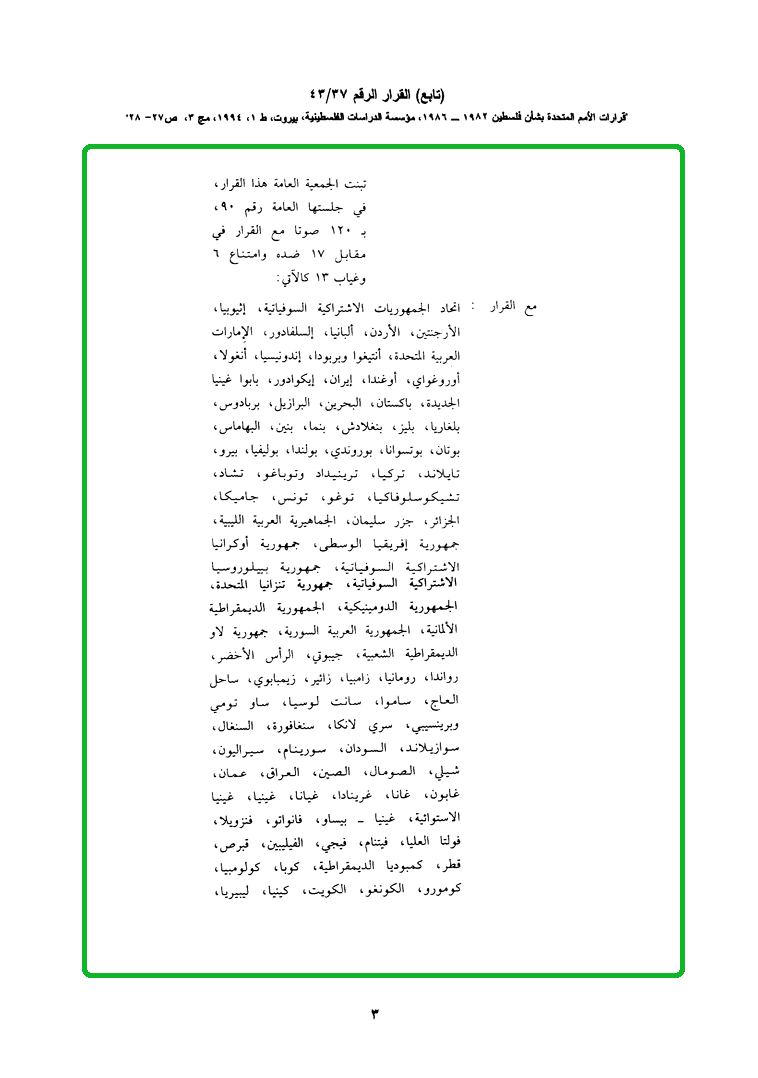 (تابع) القرار الرقم ٤٣/٣٧
"قرارات الأمم المتحدة بشأن فلسطين ١٩٨٢ ــ ١٩٨٦، مؤسسة الدراسات الفلسطينية، بيروت، ط ١، ١٩٩٤، مج ٣، ص٢٧- ٢٨"
تبنت الجمعية العامة هذا القرار،
في جلستها العامة رقم ٩٠،
بـ ١٢٠ صوتا مع القرار في
مقابل ١٧ ضده وامتناع ٦
وغياب ١٣ كالآتي:
مع القرار : اتحاد الجمهوريات الاشتراكية السوفياتية، إثيوبيا،
الأرجنتين، الأردن، ألبانيا، إلسلفادور، الإمارات
العربية المتحدة، أنتيغوا وبربودا، إندونيسيا، أنغولا،
أوروغواي، أوغندا، إيران، إيكوادور، بابوا غينيا
الجديدة، باكستان، البحرين، البرازيل، بربادوس،
بلغاريا، بليز، بنغلادش، بنما، بنين، البهاماس،
بوتان، بوتسوانا، بوروندي، بولندا، بوليفيا، بيرو،
تايلاند، تركيا، ترينيداد وتوباغو، تشاد،
تشيكوسلوفاكيا، توغو، تونس، جاميكا،
الجزائر، جزر سليمان، الجماهيرية العربية الليبية،
جمهورية إفريقيا الوسطى، جمهورية أوكرانيا
الاشتراكية السوفياتية، جمهورية بييلوروسيا
الاشتراكية السوفياتية، جمهورية تنزانيا المتحدة،
الجمهورية الدومينيكية، الجمهورية الديمقراطية
الألمانية، الجمهورية العربية السورية، جمهورية لاو
الديمقراطية الشعبية، جيبوتي، الرأس الأخضر،
رواندا، رومانيا، زامبيا، زائير، زيمبابوي، ساحل
العاج، ساموا، سانت لوسيا، ساو تومي
وبرينسيبي، سري لانكا، سنغافورة، السنغال،
سوازيلاند، السودان، سورينام، سيراليون،
شيلي، الصومال، الصين، العراق، عمان،
غابون، غانا، غرينادا، غيانا، غينيا، غينيا
الاستوائية، غينيا ـ بيساو، فانواتو، فنزويلا،
فولتا العليا، فيتنام، فيجي، الفيليبين، قبرص،
قطر، كمبوديا الديمقراطية، كوبا، كولومبيا،
كومورو، الكونغو، الكويت، كينيا، ليبيريا،
٣